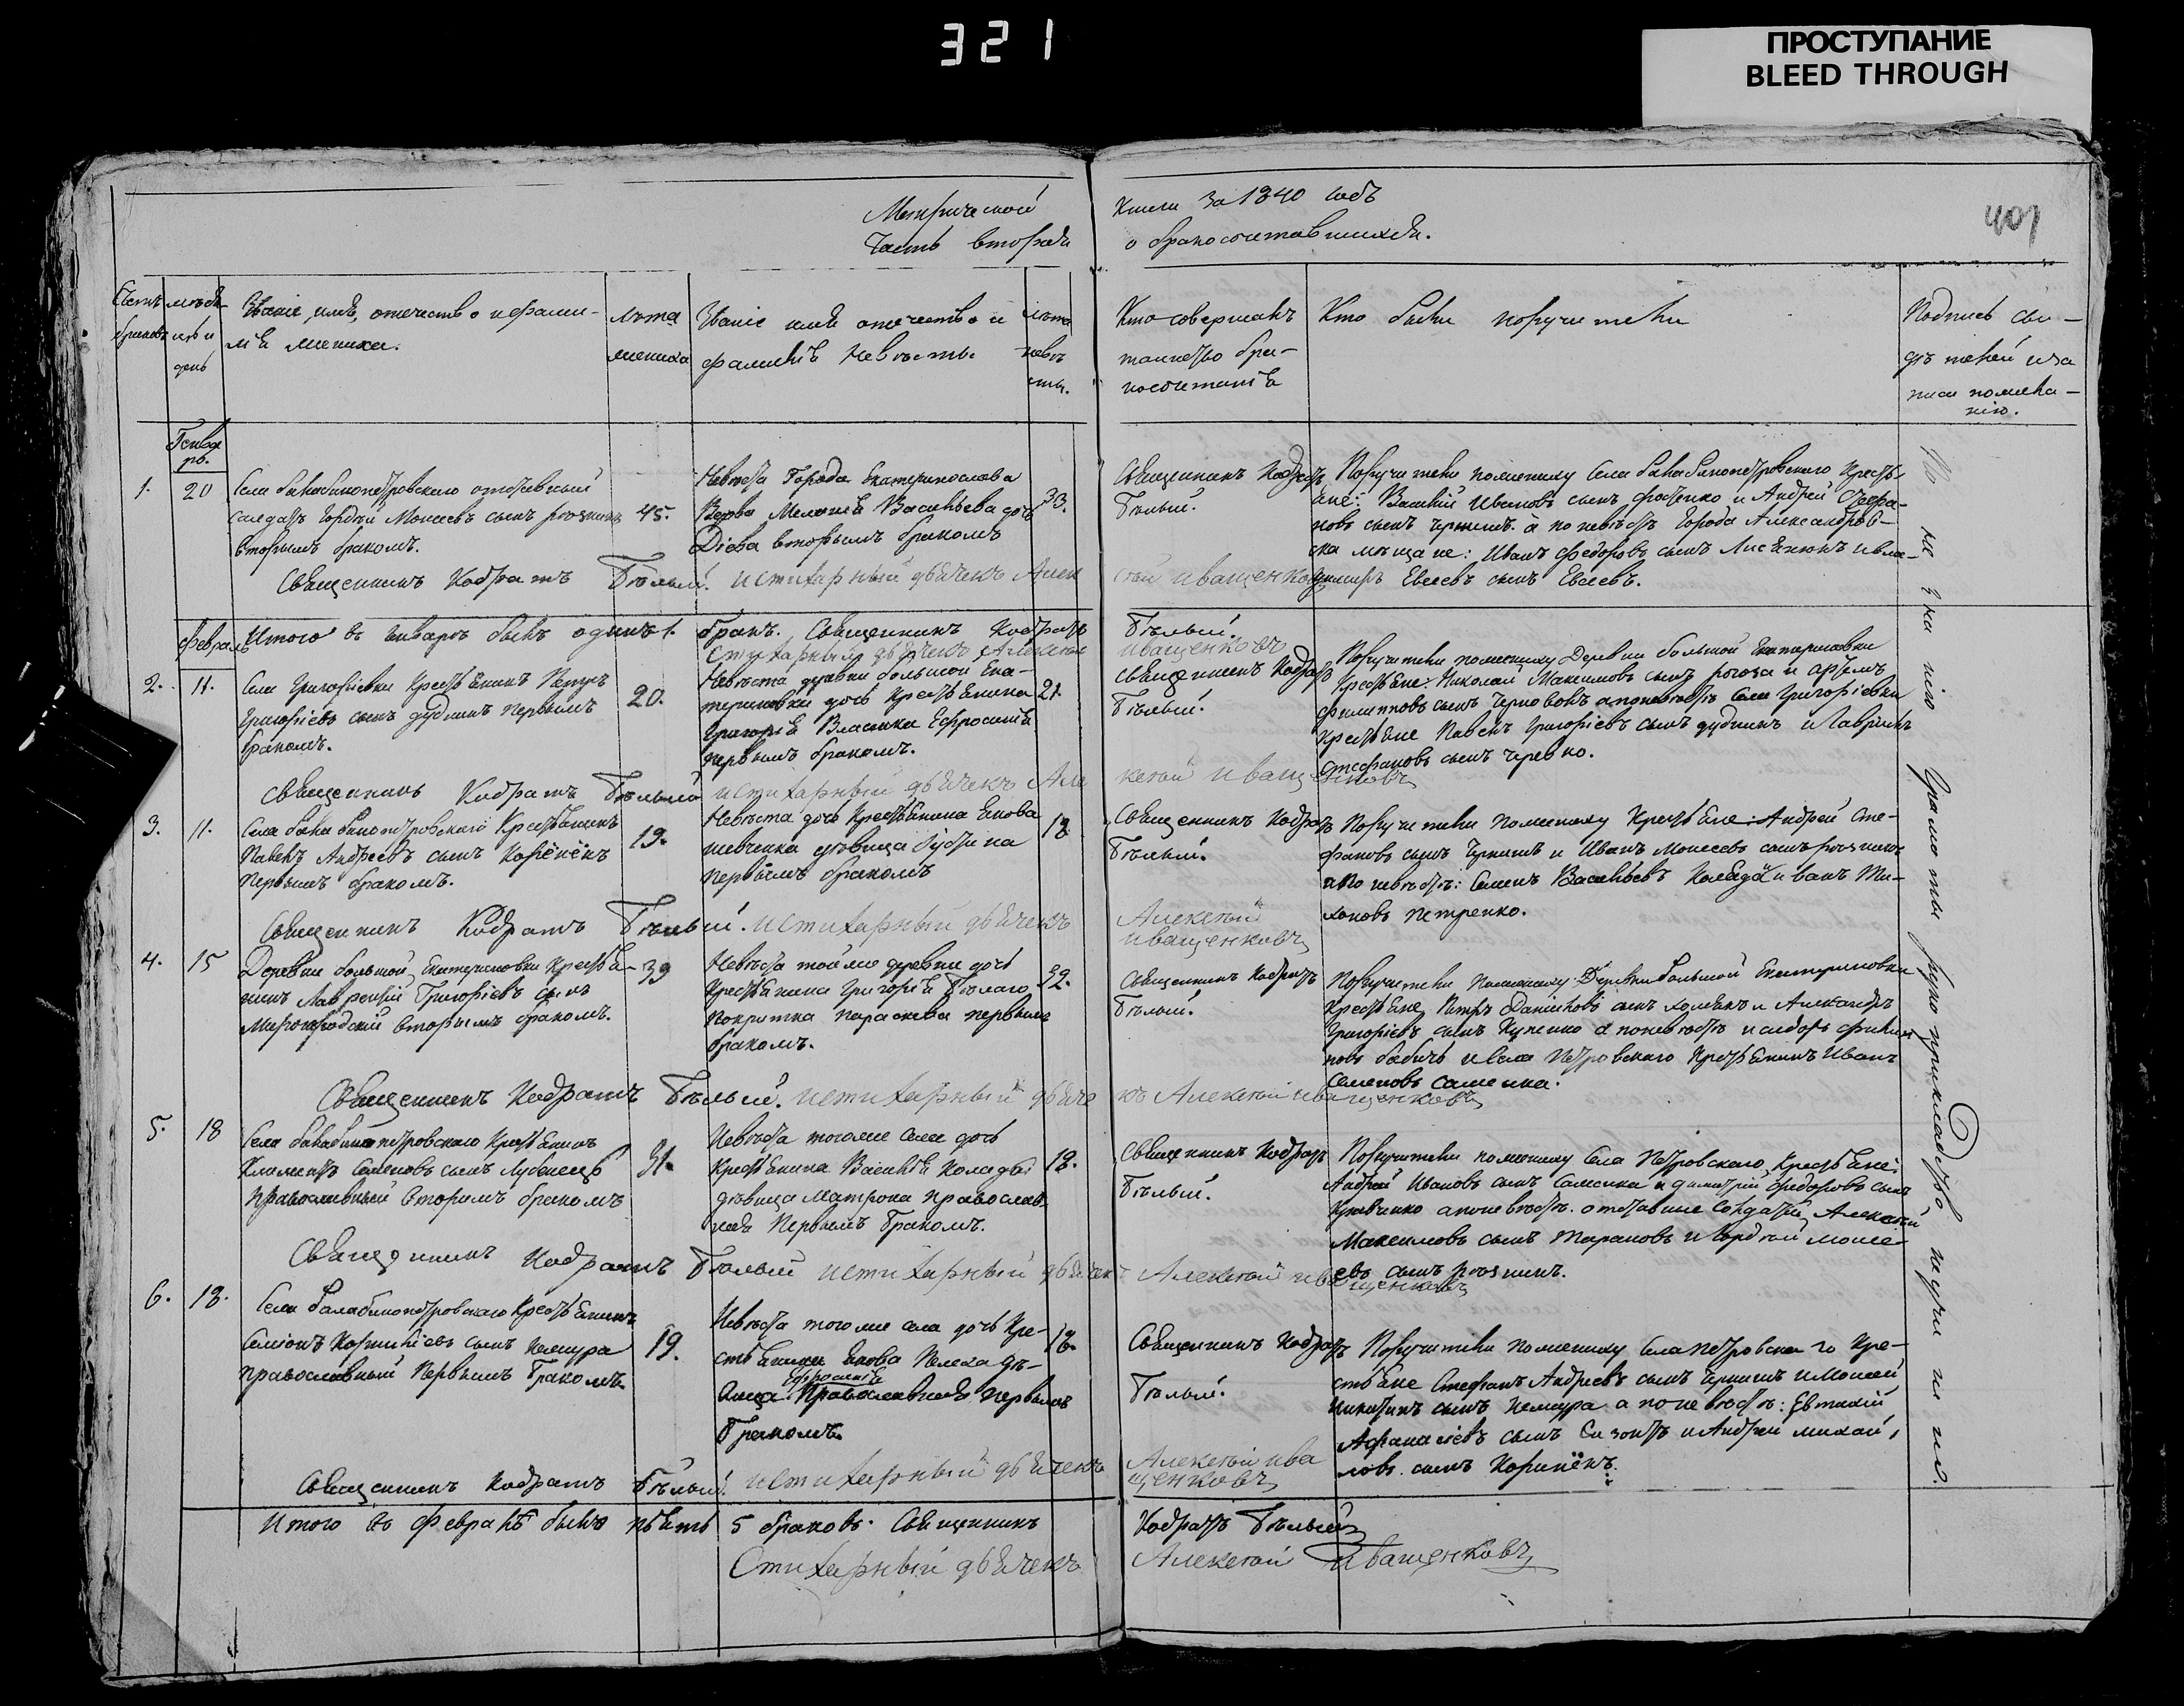 321
ПРОСТУПАНИЕ
BLEED THROUGH
401
Метрической
Часть вторая
Книги за 1840 годъ
о бракосочетавшихся.
Счетъ браковъ
мѣсяцъ и день
Званіе, имя, отечество и фами-
лія жениха.
лѣта
жениха
Званіе имя отечество и
фамилія Невѣсты
лѣта
невѣ
сты.
Кто совершалъ
таинство бра-
косочетанія
Кто были поручители
Подпись сви-
дѣтелей и за
писи по жела-
нію.
Генва
рь.
1.
20
Села Балабинопетровскаго отставный
салдатъ Гордѣй Моисеевъ сынъ
вторымъ бракомъ.
45.
Невѣста Города Екатеринослава
Вдова Меланія Васильева дочь
вторымъ бракомъ
33.
Священникъ Кодратъ
Бѣлый.
Поручители по жениху Села Балабинопетровскаго Кресть-
яне: Василій Ивановъ сынъ и Андрей Стефа-
новъ сынъ а по невѣстѣ Города Александров-
ска мѣщане: Иванъ Федоровъ сынъ и Вла-
димиръ Евсеевъ сынъ Евсеевъ.
Священникъ Кодратъ Бѣлый. и стихарный дьячекъ Алек
сѣй Иващенковъ
Февраль
Итого въ Январѣ былъ одинъ 1. бракъ. Священникъ Кодратъ
Бѣлый.
Стихарный дьячекъ Алексѣй
Иващенковъ
2.
11.
Села Григорьевки Крестьянинъ Петръ
Григорьевъ сынъ Дудникъ первымъ
бракомъ.
20.
Невѣста деревни большой Ека-
териновки дочь Крестьянина
Григорія Власенка Ефросинія
первымъ бракомъ.
21.
Священникъ Кодратъ
Бѣлый.
Поручители по жениху Деревни большой Екатериновки
Крестьяне: Николай Максимовъ сынъ Рогоза и Артемъ
Филипповъ сынъ а по невѣстѣ Села Григорьевки
Крестьяне Павелъ Григорьевъ сынъ Дудникъ и Гаврiилъ
Стефановъ сынъ Черевко.
Священникъ Кодратъ Бѣлый и стихарный дьячекъ Але
ксѣй Иващенковъ
3.
11.
Села Балабинопетровскаго Крестьянинъ
Павелъ Андреевъ сынъ
первымъ бракомъ.
19.
Невѣста дочь Крестьянина Якова
Шевченка дѣвица
первымъ бракомъ
18
Священникъ Кодратъ
Бѣлый.
Поручители по жениху Крестьяне Андрей Сте-
фановъ сынъ и Иванъ Моисеевъ сынъ
а по невѣстѣ: Семенъ Васильевъ Коляда и Иванъ Ти-
хоновъ Петренко.
Священникъ Кодратъ Бѣлый. и стихарный дьячекъ
Алексѣй
Иващенковъ
4.
15
Деревни большой Екатериновки Крестья-
нинъ Лаврентій Григорьевъ сынъ
Миргородскій вторымъ бракомъ.
39
Невѣста той же деревни дочь
Крестьянина Григорія Бѣлаго
Покритка Параскева первымъ
бракомъ.
32.
Священникъ Кодратъ
Бѣлый.
Поручители по жениху Деревни большой Екатериновки
Крестьяне Петръ Даниловъ сынъ и Александръ
Григорьевъ сынъ а по невѣстѣ Исидоръ Филип
повъ Бабичъ и Села Петровскаго Крестьянинъ Иванъ
Семеновъ
Священникъ Кодратъ Бѣлый. и стихарный дьяче
къ Алексѣй Иващенковъ
5.
18
Села Балабинопетровскаго Крестьянинъ
Климентъ Семеновъ сынъ Лубенецъ
Православный вторимъ бракомъ
31.
Невѣста того же Села дочь
Крестьянина Василія Коляды
дѣвица Матрона Православ
ная первымъ бракомъ.
18.
Священникъ Кодратъ
Бѣлый.
Поручители по жениху Села Петровскаго Крестьяне:
Андрей Ивановъ сынъ и Димитрій Федоровъ сынъ
Кравченко а по невѣстѣ. отставные Солдаты Алексѣй
Максимовъ сынъ Тарановъ и Гордѣй Моисе-
евъ сынъ
Священникъ Кодратъ Бѣлый и стихарный дьячекъ
Алексѣй Иващенковъ
6.
18.
Села Балабинопетровскаго Крестьянинъ
Семіонъ Корнилѣевъ сынъ Кемура
православный первымъ бракомъ.
19.
Невѣста того же села дочь Кре-
стьянина Якова дѣ-
вица Ефросинія Православная первымъ
бракомъ.
18.
Священникъ Кодратъ
Бѣлый.
Поручители по жениху Села Петровскаго Кре-
стьяне Стефанъ Андреевъ сынъ и Моисей
сынъ Кемура а по невѣстѣ: Евтихій
Афанасіевъ сынъ и Андрей Михай-
ловъ сынъ
Священникъ Кодратъ Бѣлый. и стихарный дьячекъ
Алексѣй Ива
щенковъ
Итого въ Февралѣ былъ пять 5 браковъ. Священникъ
Кодратъ Бѣлый
Стихарный дьячекъ
Алексѣй Иващенковъ
По незнанію грамоты рукоприкладство